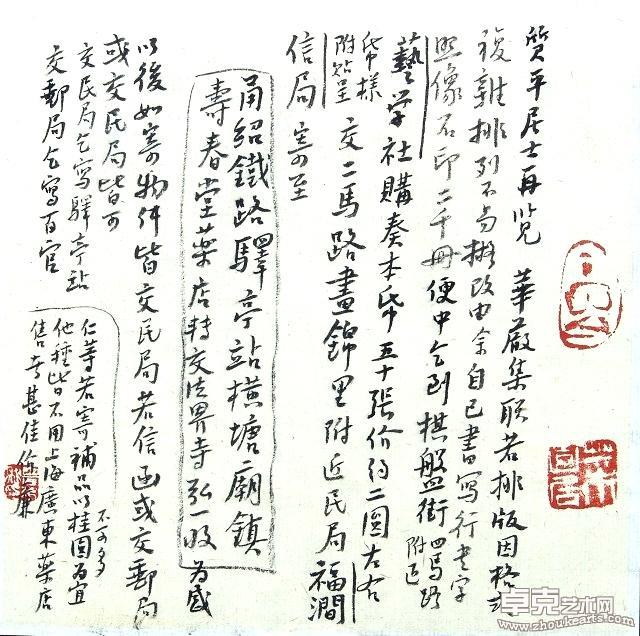 質平居士再覽 華嚴集聯若排版因格式
複雜排列不易擬改由余自己書寫行書字
照像石印二千冊便中乞到棋盤街四馬路附近
藝学社購奏本紙五十張價約二圓左右
紙樣附貼呈 交二馬路晝錦里附近民局福潤
信局寄至
甬紹鐵路驛亭站橫塘廟鎮
壽春堂葯店轉交法界寺弘一收 为感
以後如寄物件皆交民局若信函或交郵局
或交民局皆可
交民局乞寫驛亭站
交郵局乞寫百官
仁等若寄補品以桂圓为宜不可多
他種皆不用上海廣東葯店
售者甚佳價廉
卓克艺术网
www.zhoukearts.com